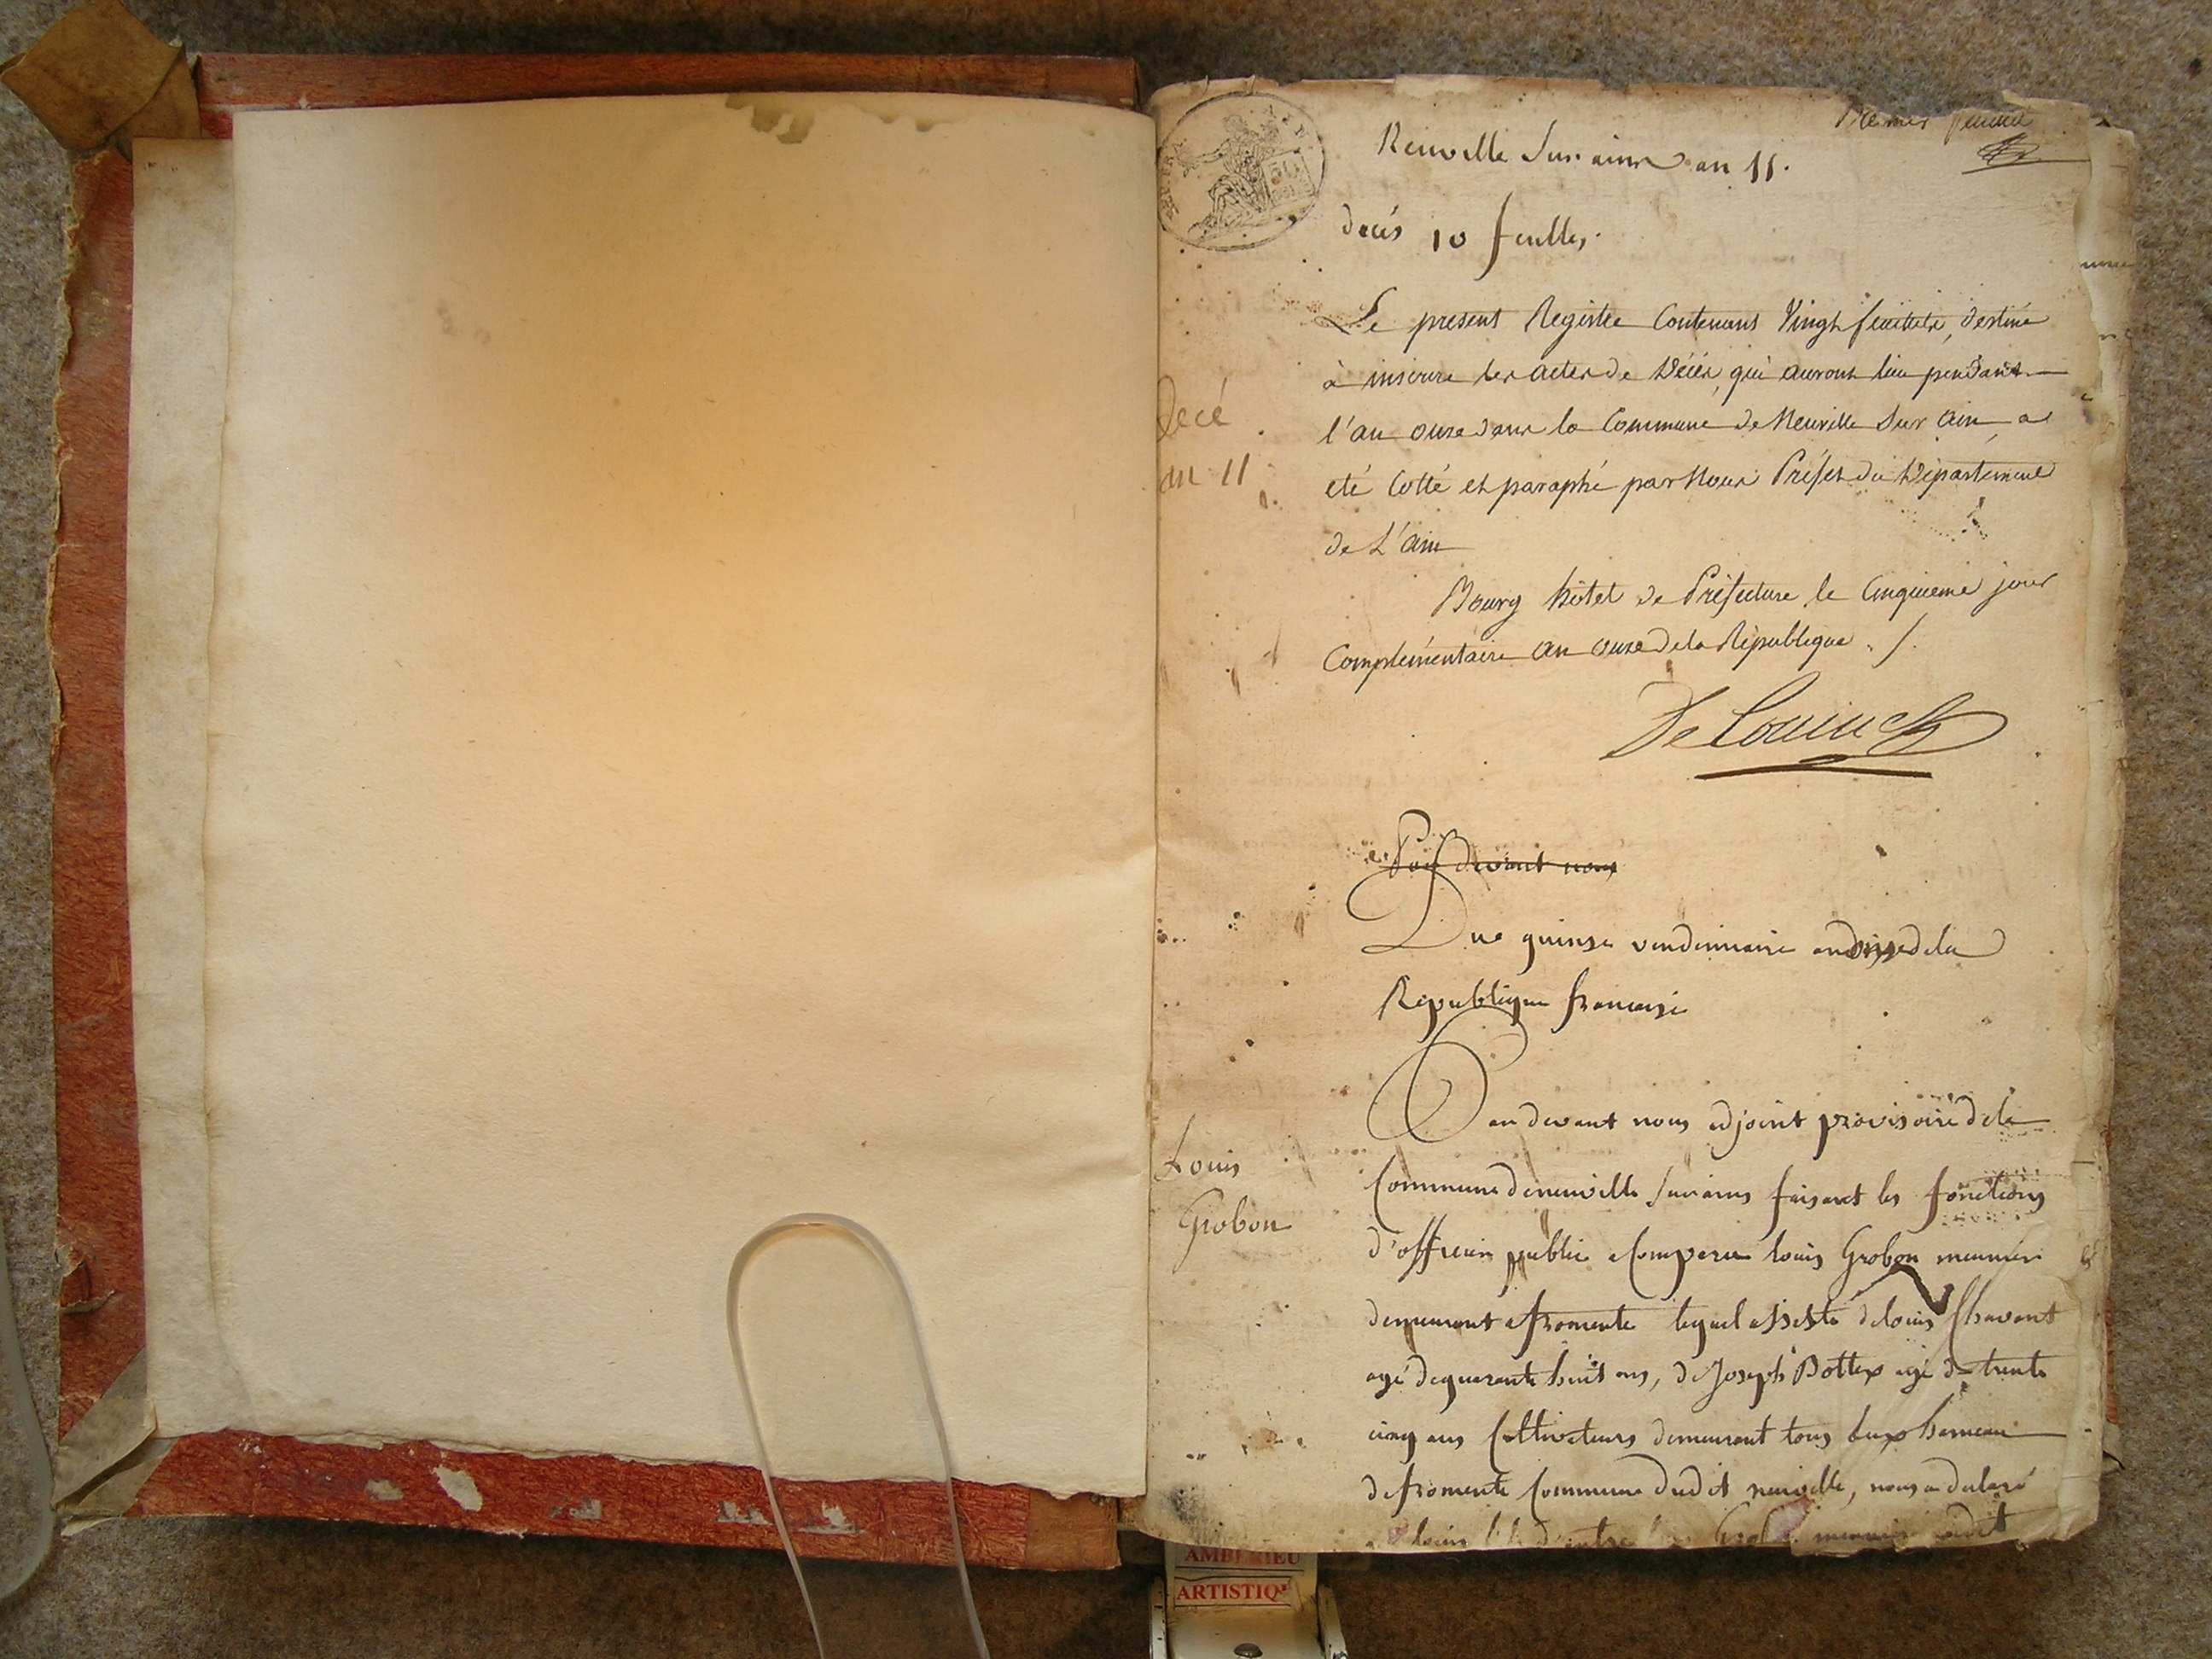 Premier feuillet
Neuville Sur ainx an 11.
décés 10 feuilles.
Le present Registre Contenant Vingt feuillets, destiné
à inscrire les actes de Décés, qui auront lieu pendant
l'an onze dans la Commune de Neuville Sur Ain, a
Decé
an 11
eté Cotté et paraphé par Nous Préfet du Département
de L'ain
Bourg hôtel de Préfecture le Cinquieme jour
Complémentaire an onze de la République ./.
Par devant nous
Du quinse vendemiaire an de la
République francaise
Par devant nous adjoint provisoire de la
Louis
Grobon
Commune de neuville Sur ains faisant les fonctions
d'officier public a Comparu louis Grobon meunier
demeurant a fromente lequel assisté de louis Chavant
agé de quarante huit ans, de Joseph Bottex agé de trente
cinq ans Cultivateurs demeurant tous deux hameau
de fromente Commune dudit neuville, nous a declaré
AMBERIEU
ARTISTIQ